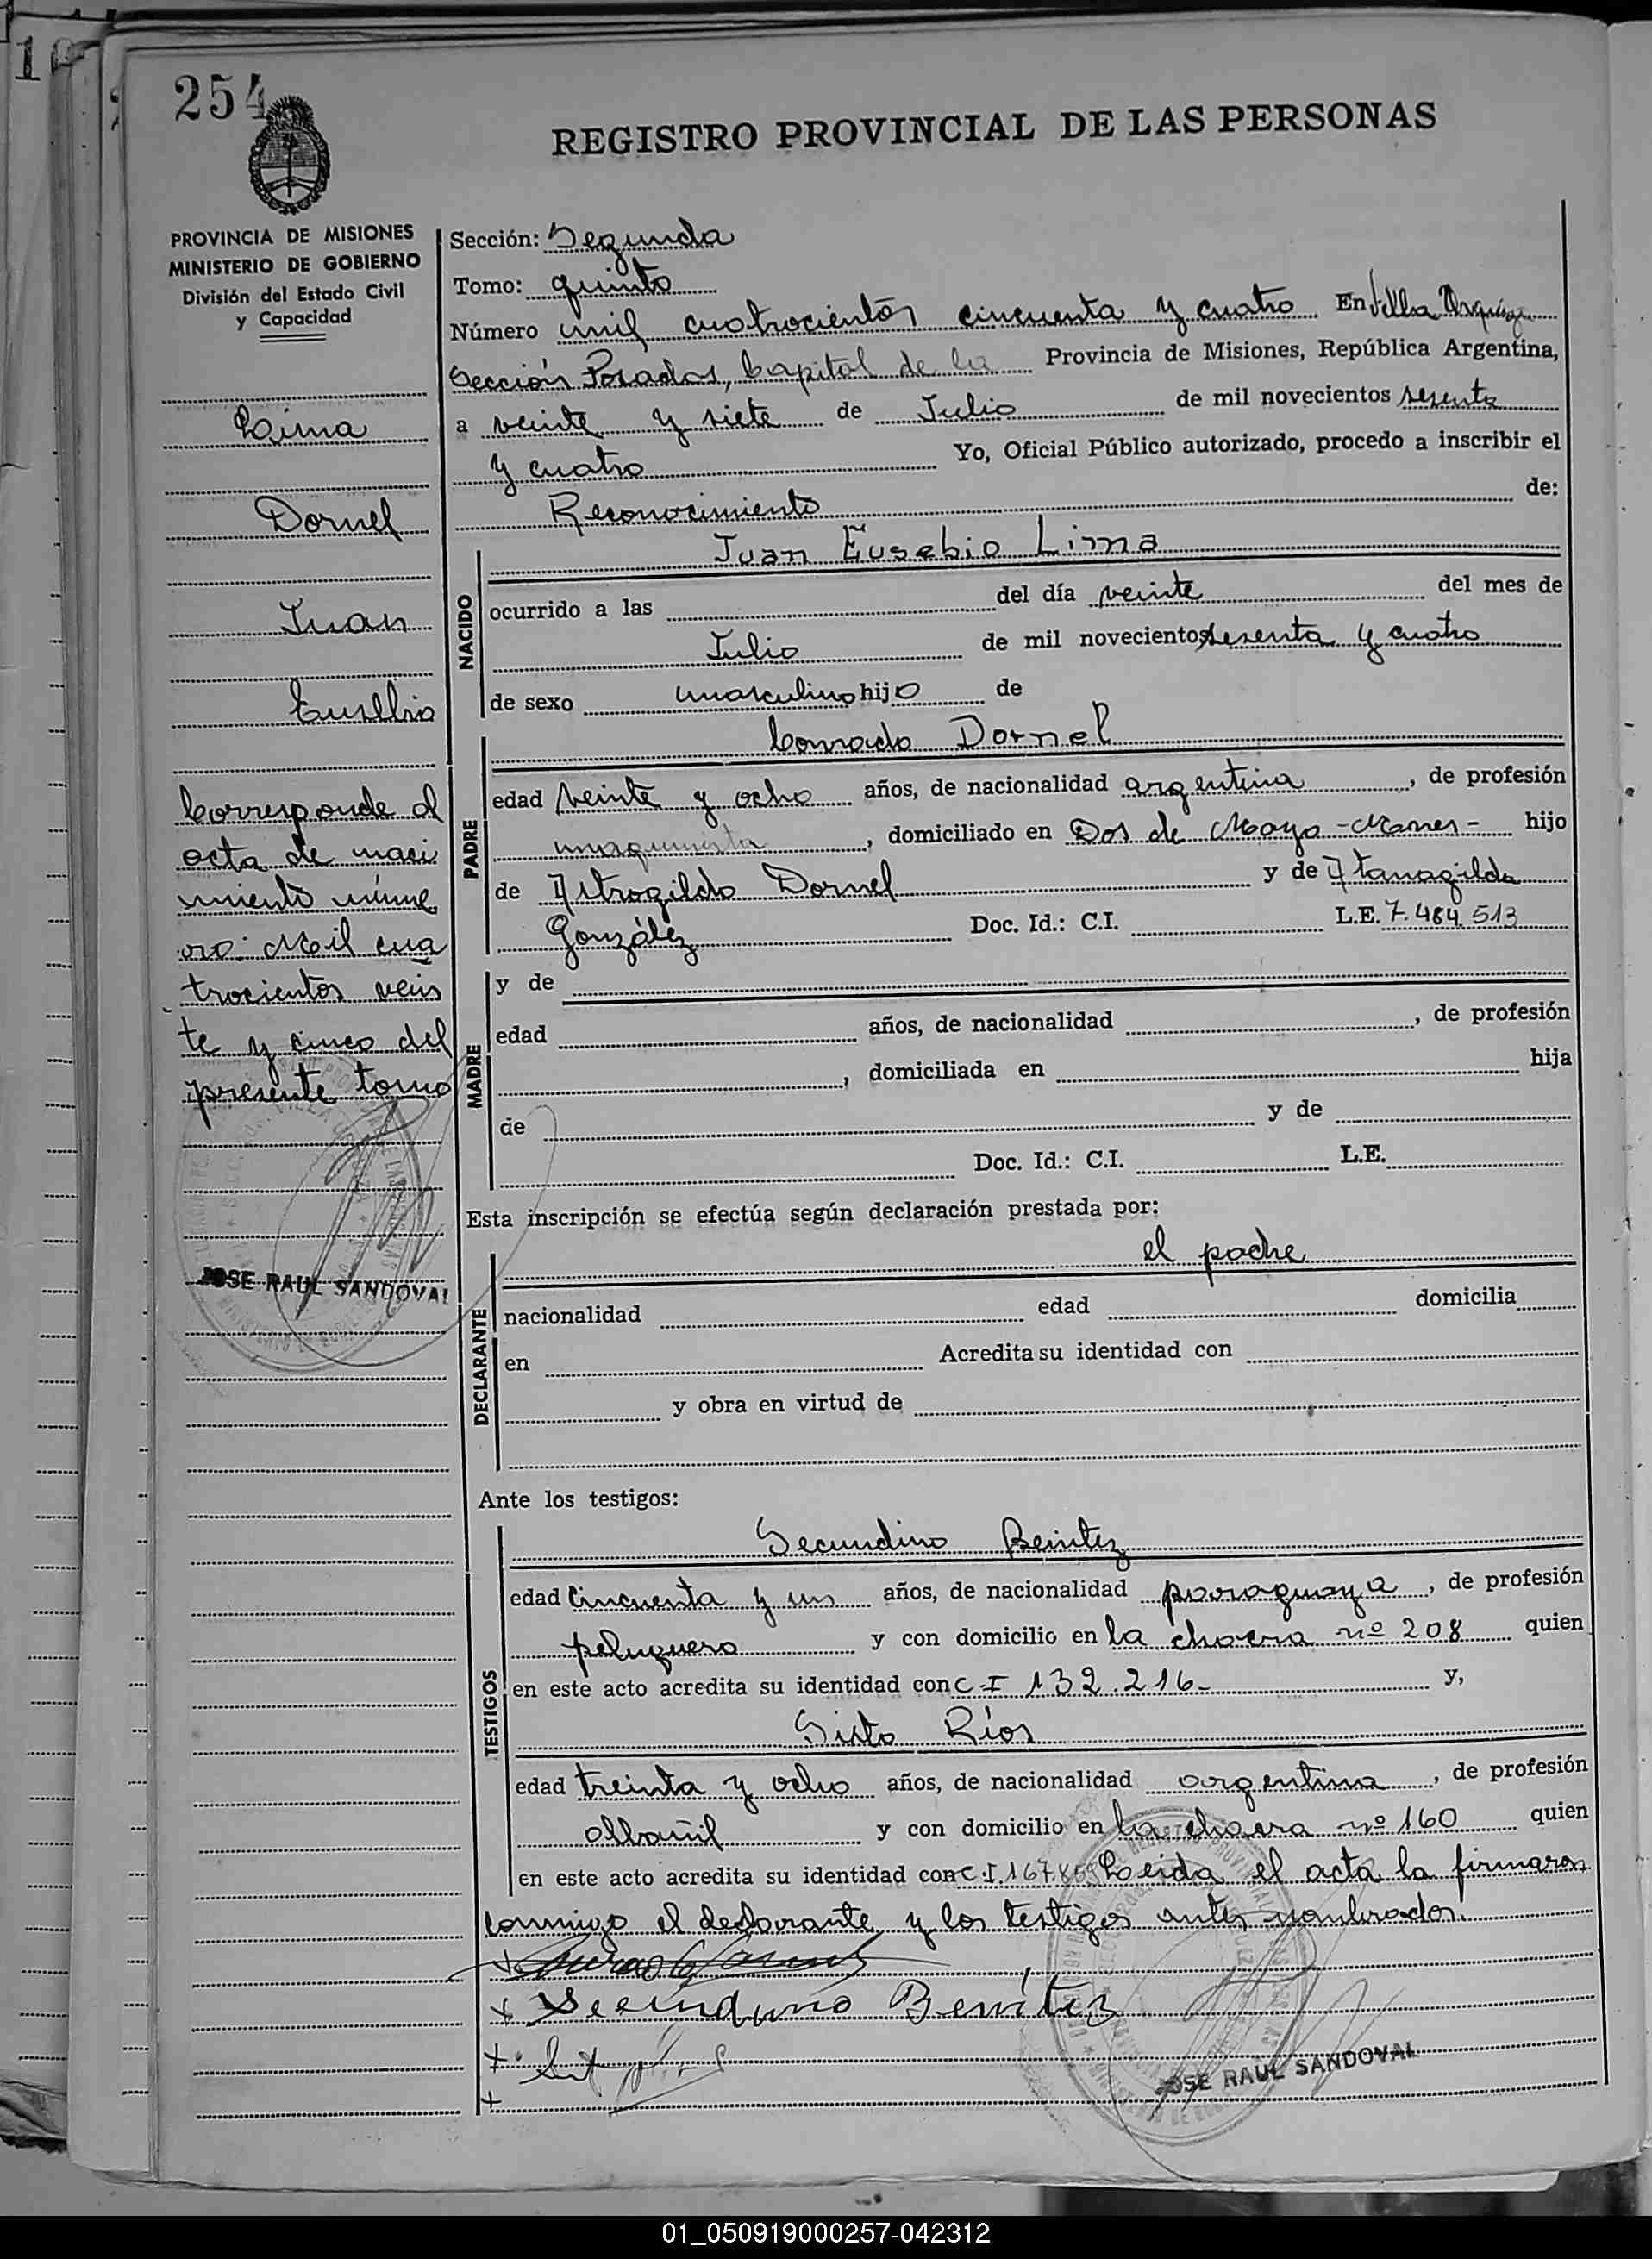 254
REGISTRO PROVINCIAL DE LAS PERSONAS
PROVINCIA DE MISIONES
MINISTERIO DE GOBIERNO
División del Estado Civil
y Capacidad
Lima
Dornel
Juan
Eusebio
Corresponde al
acta de naci
miento núme
ro: Mil cua
trocientos vein
te y cinco del
presente tomo
JOSE RAUL SANDOVAL
Sección: Segunda
Tomo: quinto
Número mil cuatrocientos cincuenta y cuatro En Villa Urquiza
Sección Posadas, Capital de la Provincia de Misiones, República Argentina,
a veinte y siete de Julio de mil novecientos sesenta
y cuatro Yo, Oficial Público autorizado, procedo a inscribir el
Reconocimiento de:
NACIDO
Juan Eusebio Lima
ocurrido a las del día veinte del mes de
Julio de mil novecientos sesenta y cuatro
de sexo masculino hijo de
PADRE
Conrado Dornel
edad veinte y ocho años, de nacionalidad argentina, de profesión
maquinista, domiciliado en Dos de Mayo - Mones - hijo
de Atrogildo Dornel y de Atanagilda
González Doc. Id.: C.I. L.E. 7.484.513
MADRE
y de
edad años, de nacionalidad , de profesión
, domiciliada en hija
de y de
Doc. Id.: C.I. L.E.
Esta inscripción se efectúa según declaración prestada por:
DECLARANTE
el padre
nacionalidad edad domicilia
en Acredita su identidad con
y obra en virtud de
Ante los testigos:
TESTIGOS
Secundino Benitez
edad Cincuenta y un años, de nacionalidad paraguaya, de profesión
peluquero y con domicilio en la chacra nº 208 quien
en este acto acredita su identidad con C-I 132.216- y,
Sixto Ríos
edad treinta y ocho años, de nacionalidad argentina, de profesión
albañil y con domicilio en la chacra nº 160 quien
en este acto acredita su identidad con C.I. 167.859 Leida el acta la firmaron
conmigo el declarante y los testigos antes nombrados.
Secundino Benítez
JOSE RAUL SANDOVAL
01_050919000257-042312